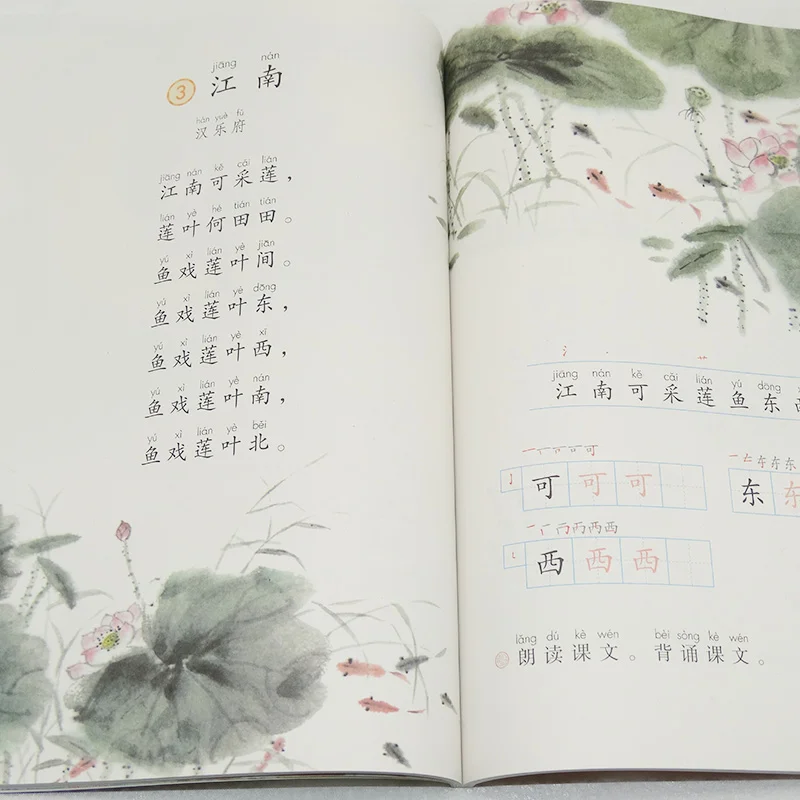 jiāng nán
3 江南
hàn yuè fǔ
汉乐府
jiāng nán kě cǎi lián
江南可采莲，
lián yè hé tián tián
莲叶何田田。
yú xì lián yè jiān
鱼戏莲叶间。
yú xì lián yè dōng
鱼戏莲叶东，
yú xì lián yè xī
鱼戏莲叶西，
yú xì lián yè nán
鱼戏莲叶南，
yú xì lián yè běi
鱼戏莲叶北。
jiāng nán kě cǎi lián yú dōng
江南可采莲鱼东西
可可可
东东
西西西
lǎng dú kè wén bèi sòng kè wén
朗读课文。背诵课文。